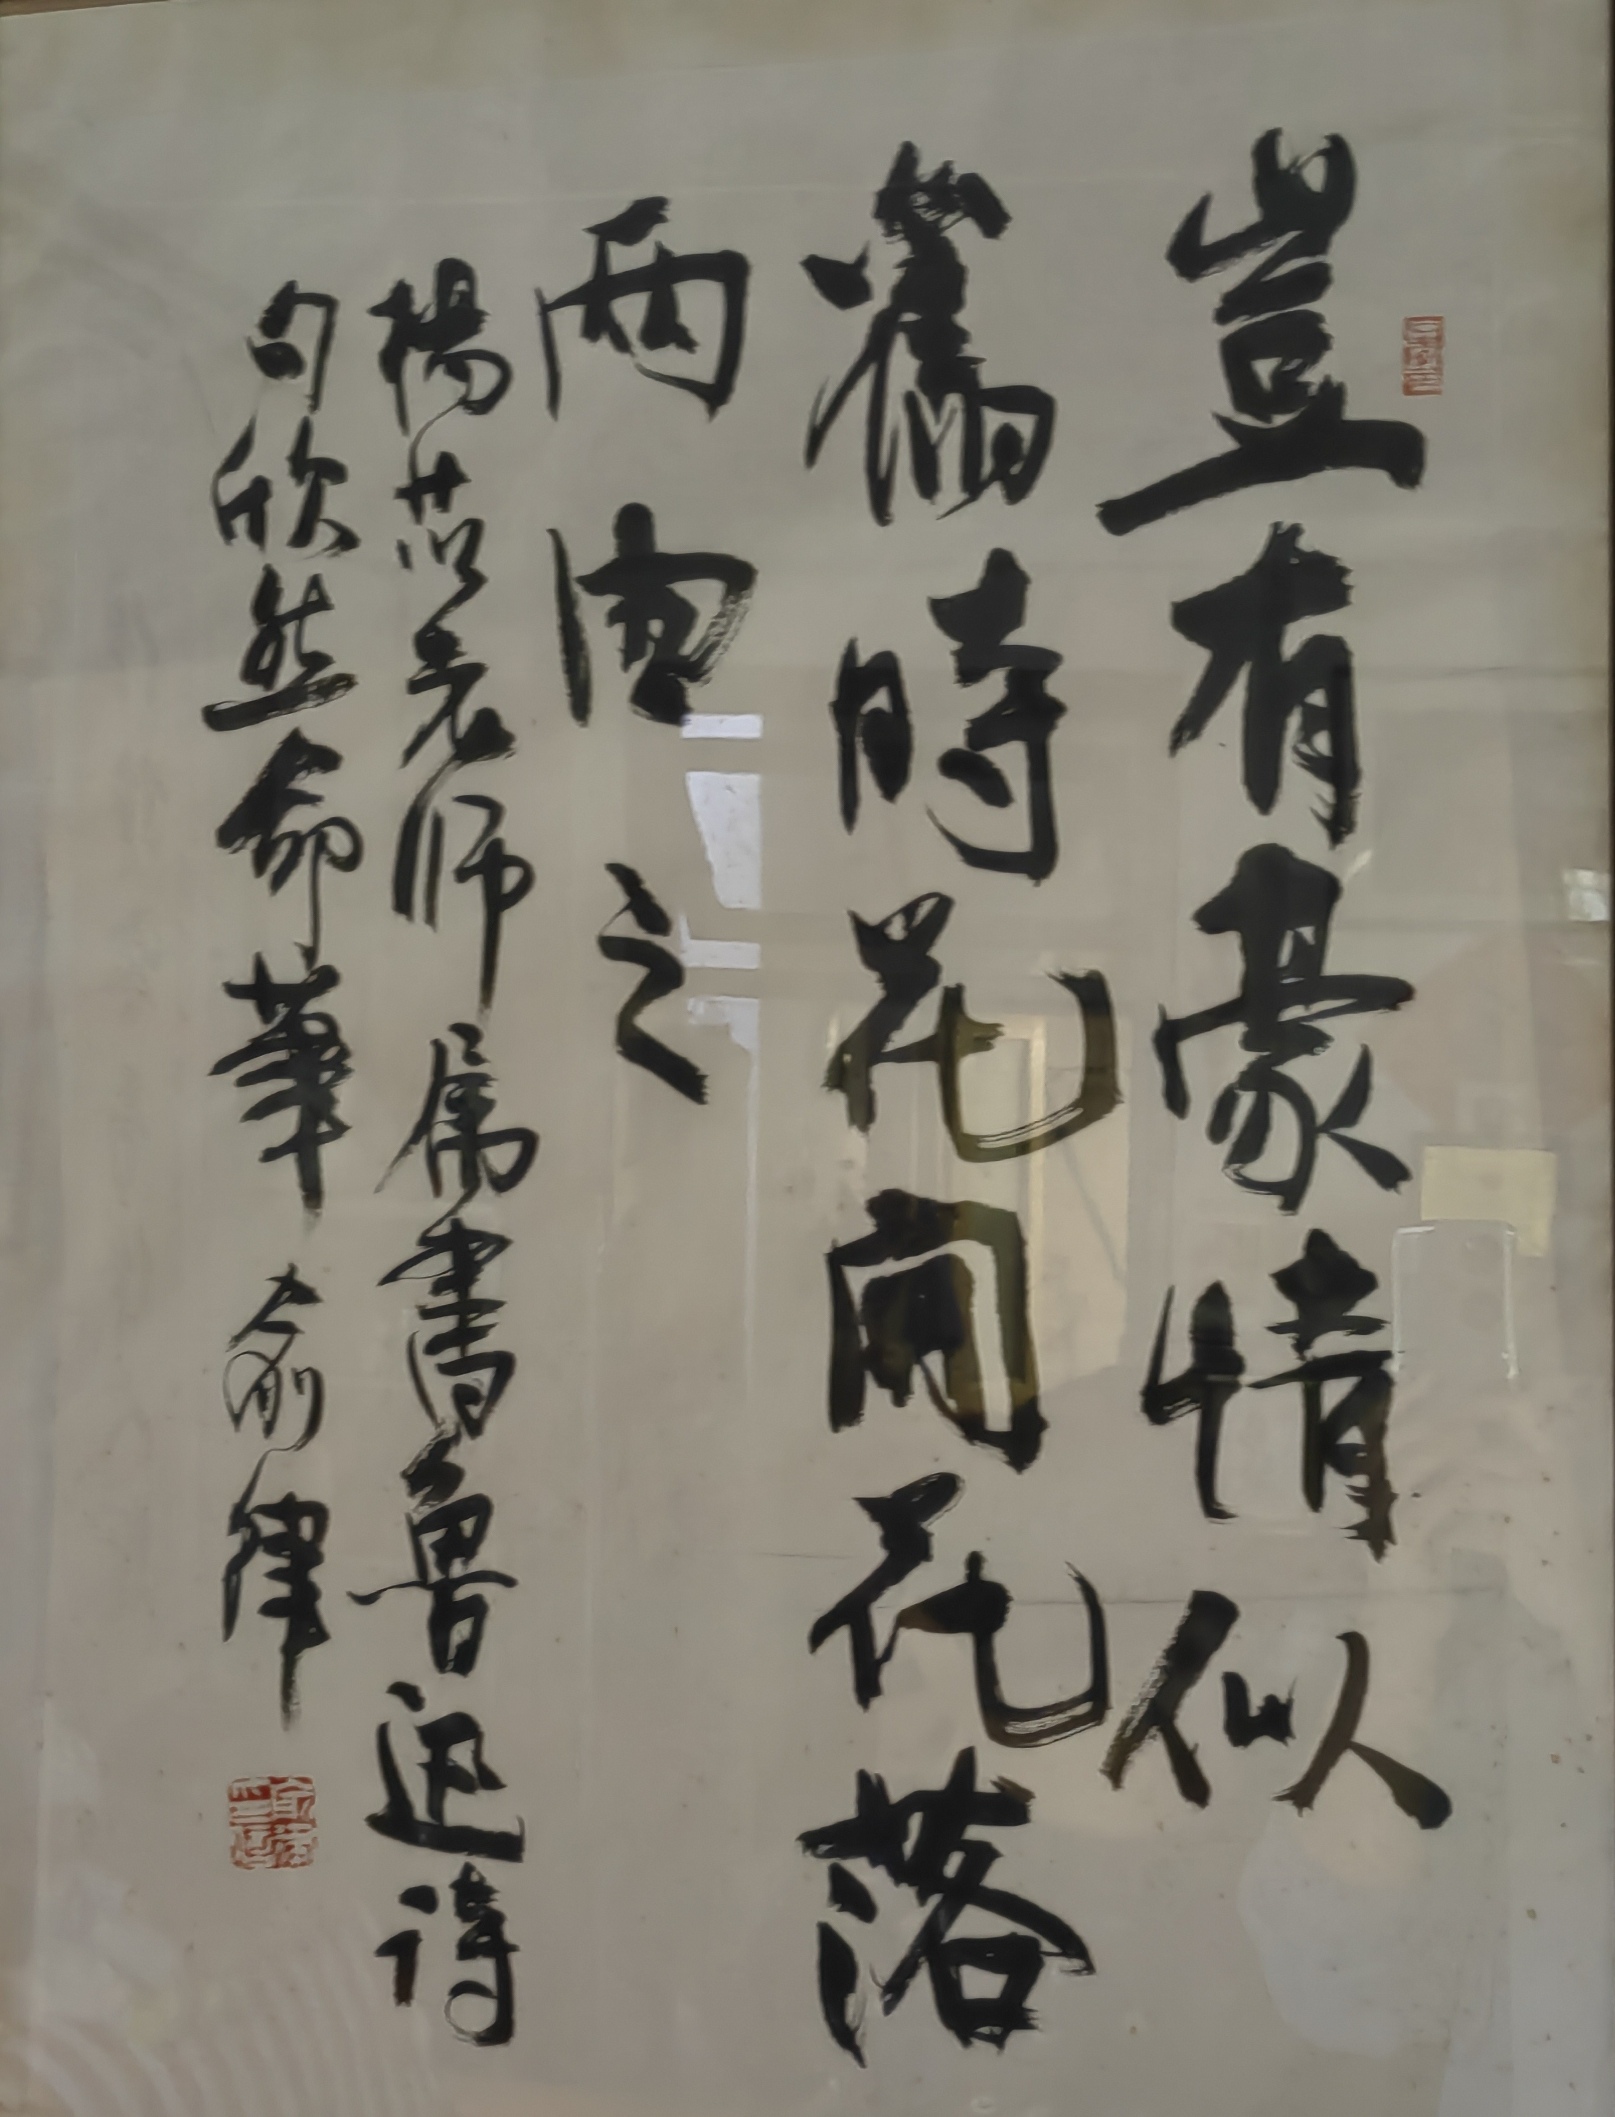 豈有豪情似
舊時花開花落
兩由之
楊苡老師属書魯迅詩
句欣然命筆 俞律